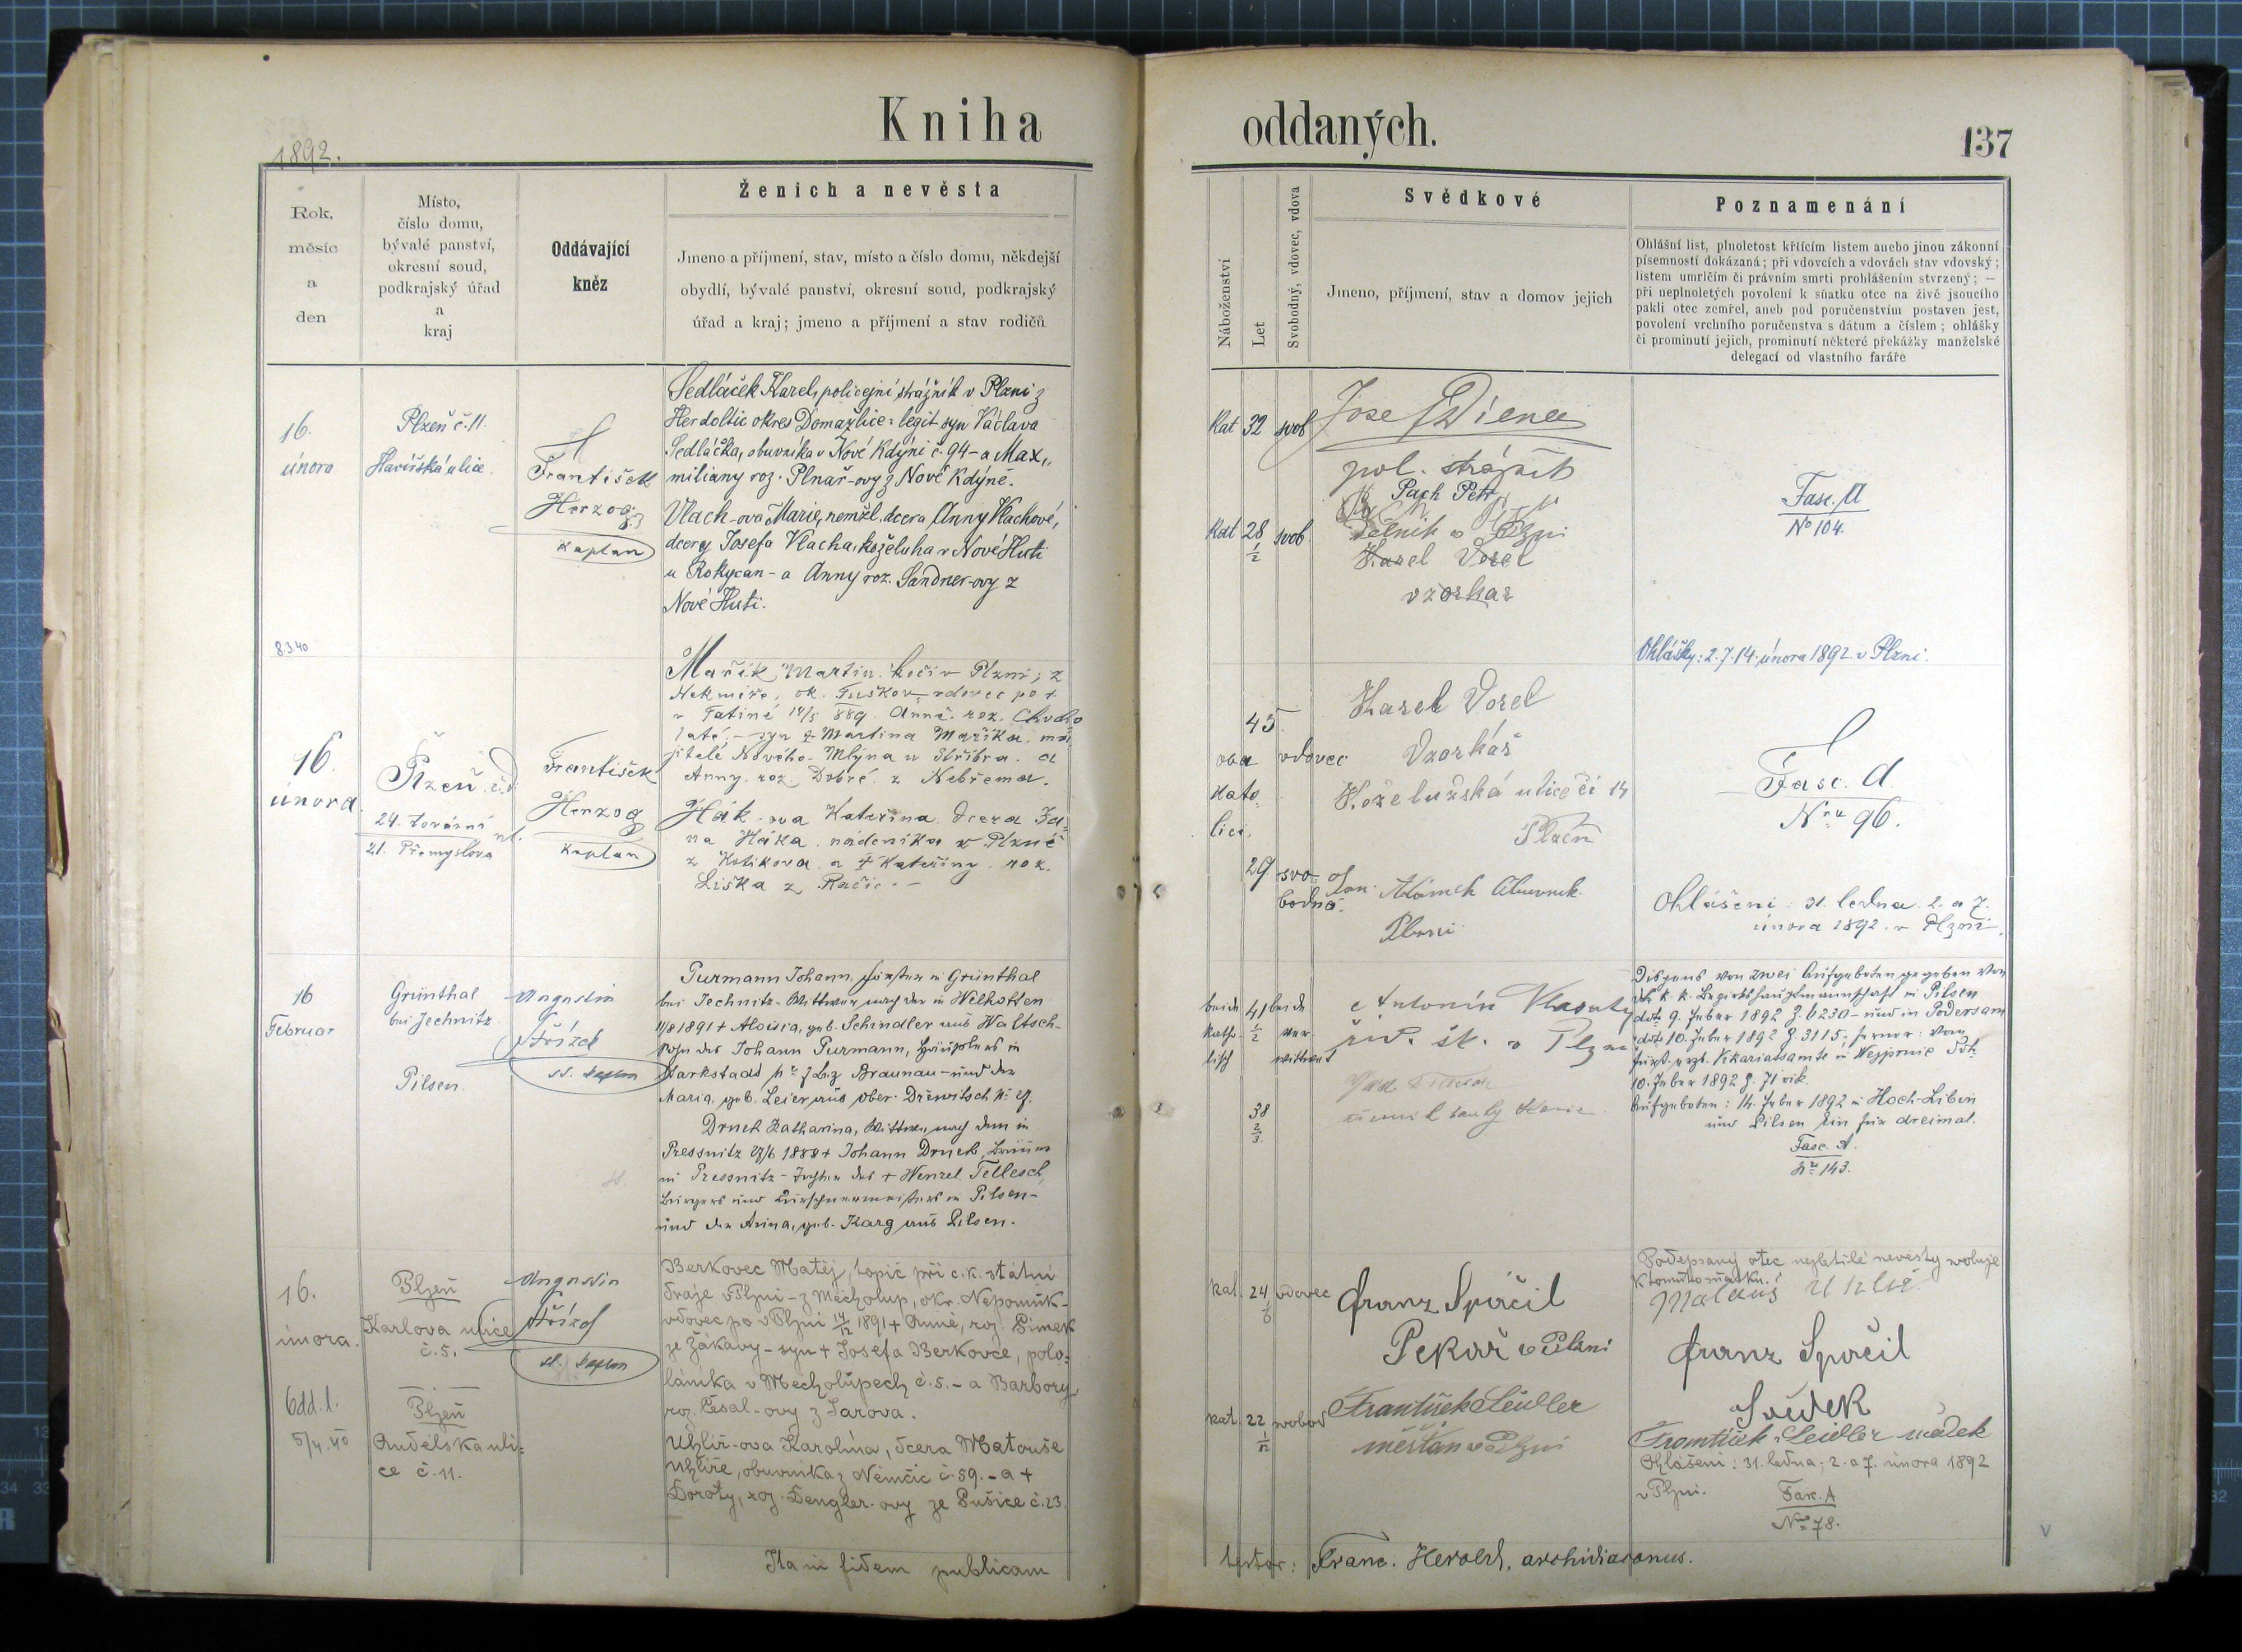 Kniha
oddaných.
137
1892.
Rok,
měsíc
a
den
Místo,
číslo domu,
bývalé panství,
okresní soud,
podkrajský úřad
a
kraj
Oddávající
kněz
Ženich a nevěsta
Jmeno a příjmení, stav, místo a číslo domu, někdejší
obydlí, bývalé panství, okresní soud, podkrajský
úřad a kraj; jmeno a příjmení a stav rodičů
Náboženství
Let
Svobodný, vdovec, vdova
Svědkové
Jmeno, příjmení, stav a domov jejich
Poznamenání
Ohlášní list, plnoletost křtícím listem anebo jinou zákonní
písemností dokázaná; při vdovcích a vdovách stav vdovský;
listem umrlčím či právním smrti prohlášením stvrzený; —
při neplnoletých povolení k sňatku otce na živě jsoucího
pakli otec zemřel, aneb pod poručenstvím postaven jest,
povolení vrchního poručenstva s dátum a číslem; ohlášky
či prominutí jejich, prominutí některé překážky manželské
delegací od vlastního faráře
16.
února
Plzeň č. 11.
Havířská ulice
František
Herzog
kaplan
Sedláček Karel, policejní strážník v Plzni z
Herdoltic okres Domažlice: legit. syn Václava
Sedláčka, obuvníka v Nové Kdýni č. 94 - a Max„
miliany roz. Plnař-ovy z Nové Kdýně.
Vlach-ova Marie, nemžl. dcera Anny Vlachové,
dcery Josefa Vlacha, koželuha v Nové Huti
u Rokycan - a Anny roz. Sandner-ovy z
Nové Huti.
Kat 32 svob
Kat 28 1/2 svob
pol. strážník
Pach Petr
dělník v Plzni
Karel Vorel
vzorkař
Fasc. A
No 104.
Ohlášky: 2. 7. 14. února 1892 v Plzni.
8.3.40
16.
února.
Plzeň
24. tovární ul.
21. Přemyslova
František
Herzog
kaplan
Mařík Martin kočí v Plzni, z
Nekmíře, ok. Tuškov vdovec po +
Anny roz. Dobré z Nebřema.
Hák-ova Kateřina dcera Ja„
na Háka nádeníka v Plzně
z Kotikova a + Kateřiny roz.
Liška z Račic. -
45.
oba vdovec
kato
lici.
29 svo
bodná.
Karel Vorel
Vzorkář
Koželužská ulice či 14
Plzeň
Fasc. A.
Nro 96.
Ohlášeni: 31. ledna. 2. a 7.
února 1892. v Plzni.
16
Februar
Grünthal
bei Jechnitz
Pilsen.
Augustin
Střízek
st. kaplan
Purmann Johann, Förster in Grünthal
bei Jechnitz - Wittwer nach der in Welhotten
11/8 1891 + Aloisia, geb. Schindler aus Waltsch -
Sohn des Johann Purmann, Häuslers in
Starkstadt Bez Braunau - und der
Maria, geb. Leier aus Ober-Drewitsch
Druck Katharina, Wittwe, nach dem in
Pressnitz 1888 + Johann Druck,
in Pressnitz - Tochter des + Wenzel Tellesch,
Bürgers und Kürschnermeisters in Pilsen -
und der Anna, geb. Karg aus Pilsen.
beide 41 1/2 beide
katho ver
lisch wittwet
38
2/3.
Antonín
Dispens von zwei Aufgeboten gegeben von
der k. k. Bezirkshauptmannschaft in Pilsen
ddto 9. Feber 1892 Z. 6230 - und in Podersam
ddto 10. Feber 1892 Z. 3115, ferner: vom
10. Feber 1892 Z. 71 vik.
Aufgeboten: 14. Feber 1892 in Hoch-Libin
und Pilsen ein für dreimal.
Fasc. A.
No 143.
16.
února.
Odd. l.
5/4.40
Plzeň
Karlova ulice
č. 5.
Plzeň
Andělská uli=
ce č. 11.
Augustin
Střízek
st. kaplan
Berkovec Matěj, topič při c. k. státní
dráze v Plzni - z Měcholup, okr. Nepomuk -
vdovec po v Plzni 14/12 1891 + Anně, roz. Šimek
ze Žákavy - syn + Josefa Berkovce, polo=
láníka v Měcholupech č. 5. - a Barbory
roz. Česal-ovy z Žárova.
Uhlíř-ova Karolína, dcera Matouše
Uhlíře, obuvníka z Němčic č. 59. - a +
Doroty, roz. Dengler-ovy ze Pušice č. 23.
kat. 24 1/6 vdovec
kat. 22 1/12 svobod
Franz Spáčil
Pekař v Plzni
František Seidler
měšťan v Plzni
Podepsaný otec nezletilé nevěsty svoluje
k tomuto sňatku.
Matouš Uhlíř
Franz Spáčil
Svědek
František Seidler svědek
Ohlášeni: 31. ledna, 2. a 7. února 1892
v Plzni.
Fasc. A
Nro 78.
Ita in fidem publicam
testor: Franc. Herold, archidiaconus.